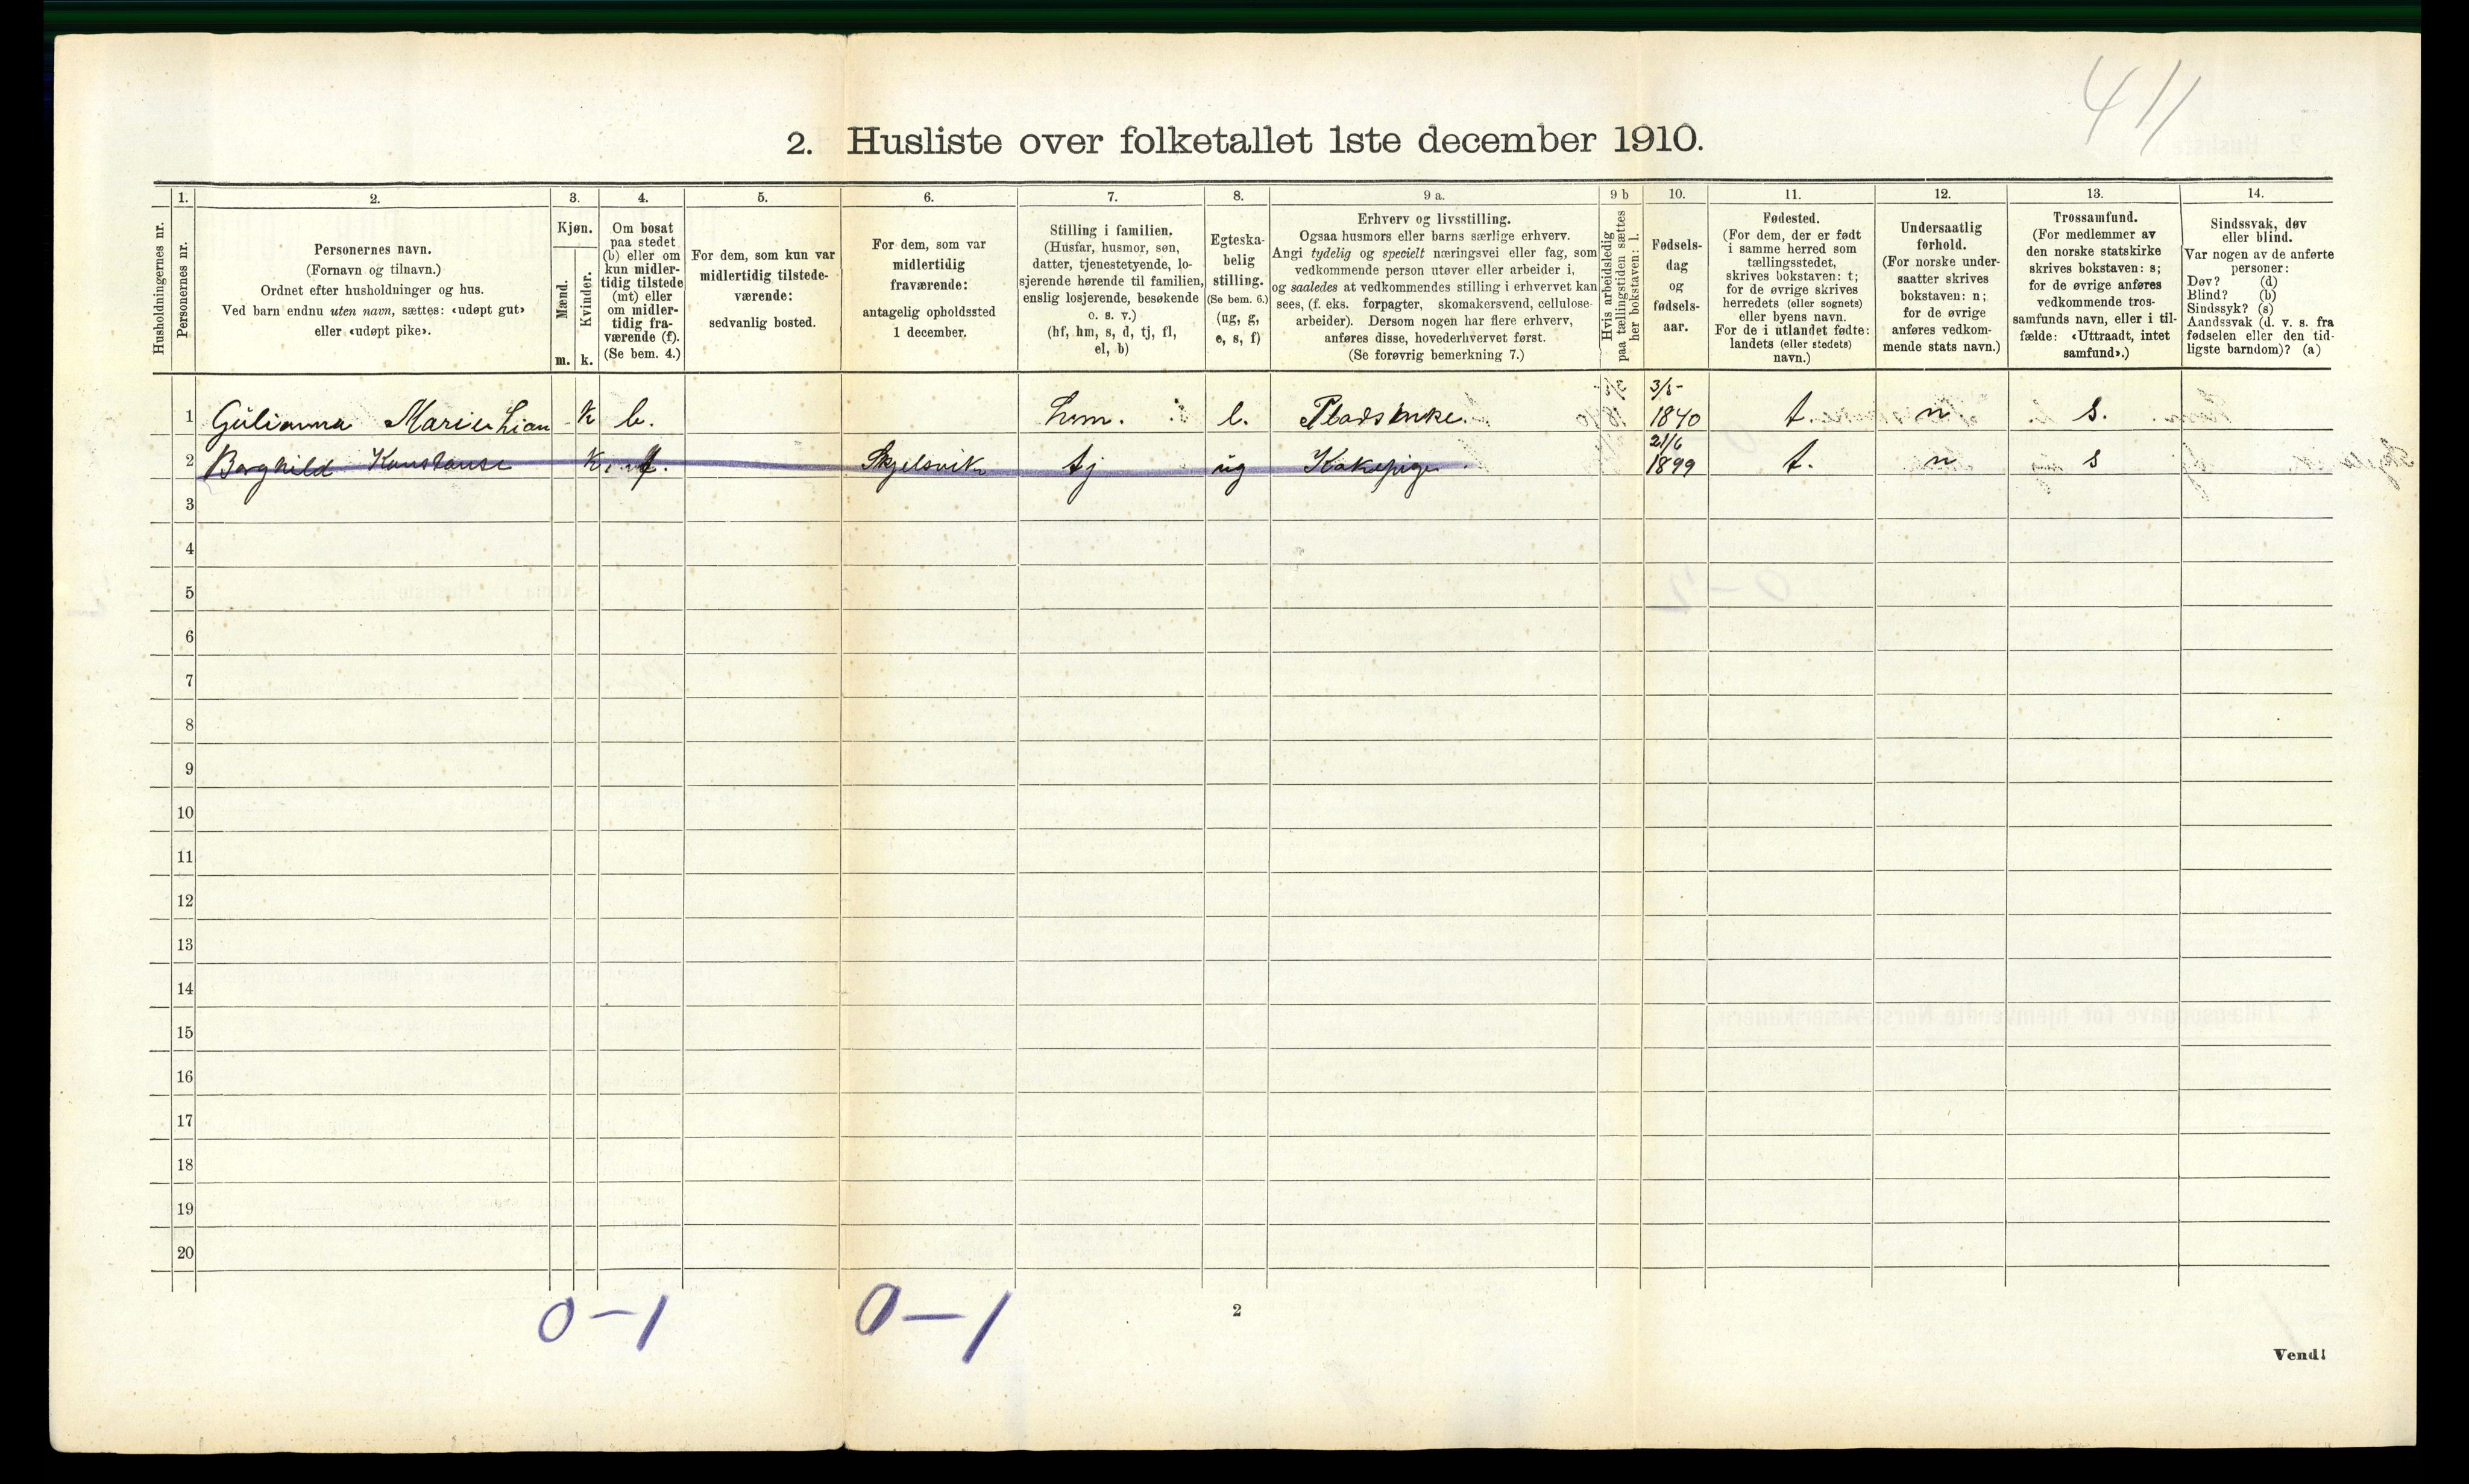 411
2. Husliste over folketallet 1ste december 1910.
Husholdningernes nr.
1.
Personernes nr.
2.
Personernes navn.
(Fornavn og tilnavn.)
Ordnet efter husholdninger og hus.
Ved barn endnu uten navn, sættes: «udøpt gut»
eller «udøpt pike».
3.
Kjøn.
Mænd.
m.
Kvinder.
k.
4.
Om bosat
paa stedet
(b) eller om
kun midler-
tidig tilstede
(mt) eller
om midler-
tidig fra-
værende (f).
(Se bem. 4.)
5.
For dem, som kun var
midlertidig tilstede-
værende:
sedvanlig bosted.
6.
For dem, som var
midlertidig
fraværende:
antagelig opholdssted
1 december.
7.
Stilling i familien.
(Husfar, husmor, søn,
datter, tjenestetyende, lo-
sjerende hørende til familien,
enslig losjerende, besøkende
o. s. v.)
(hf, hm, s, d, tj, fl,
el, b)
8.
Egteska-
belig
stilling.
(Se bem. 6.)
(ug, g,
e, s, f)
9 a.
Erhverv og livsstilling.
Ogsaa husmors eller barns særlige erhverv.
Angi tydelig og specielt næringsvei eller fag, som
vedkommende person utøver eller arbeider i,
og saaledes at vedkommendes stilling i erhvervet kan
sees, (f. eks. forpagter, skomakersvend, cellulose-
arbeider). Dersom nogen har flere erhverv,
anføres disse, hovederhvervet først.
(Se forøvrig bemerkning 7.)
9 b
Hvis arbeidsledig
paa tællingstiden sættes
her bokstaven: l.
10.
Fødsels-
dag
og
fødsels-
aar.
11.
Fødested.
(For dem, der er født
i samme herred som
tællingsstedet,
skrives bokstaven: t;
for de øvrige skrives
herredets (eller sognets)
eller byens navn.
For de i utlandet fødte:
landets (eller stedets)
navn.)
12.
Undersaatlig
forhold.
(For norske under-
saatter skrives
bokstaven: n;
for de øvrige
anføres vedkom-
mende stats navn.)
13.
Trossamfund.
(For medlemmer av
den norske statskirke
skrives bokstaven: s;
for de øvrige anføres
vedkommende tros-
samfunds navn, eller i til-
fælde: «Uttraadt, intet
samfund».)
14.
Sindssvak, døv
eller blind.
Var nogen av de anførte
personer:
Døv? (d)
Blind? (b)
Sindssyk? (s)
Aandssvak (d. v. s. fra
fødselen eller den tid-
ligste barndom)? (a)
1 Gülianna Marie Lian K b. hm. e. Pladsenke. 3/5- 1840 t. n s.
2 Borghild Konstanse K f. Skjelsvik tj ug Kokepige 21/6 1899 t. n s
3
4
5
6
7
8
9
10
11
12
13
14
15
16
17
18
19
20
0-1 0-1
2
Vend!